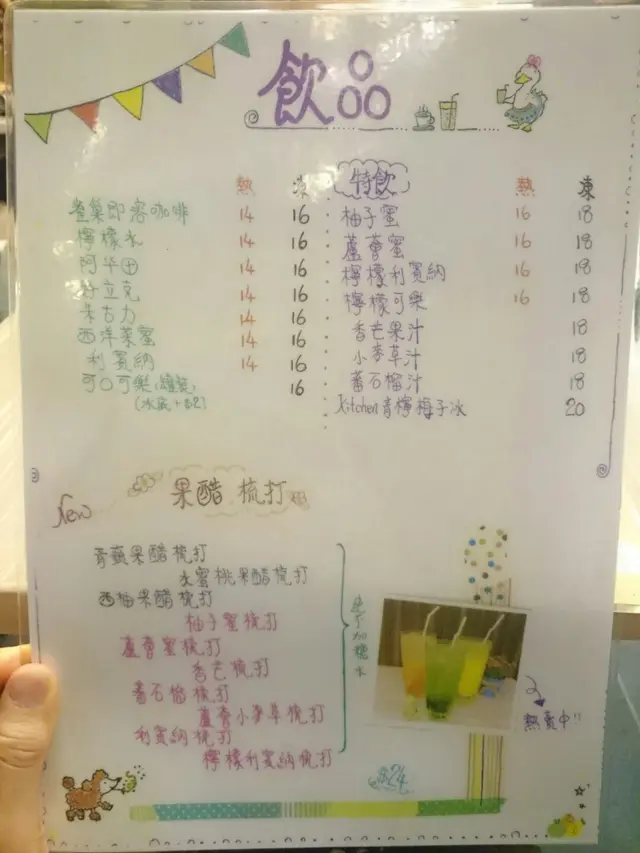 飲品
熱 凍
雀巢即溶咖啡 14 16
檸檬水 14 16
阿华田 14 16
好立克 14 16
朱古力 14 16
西洋菜蜜 14 16
利賓納 14 16
可口可樂(罐裝) 16
(冰底+$2)
特飲 熱 凍
柚子蜜 16 18
蘆薈蜜 16 18
檸檬利賓納 16 18
檸檬可樂 16 18
香芒果汁 18
小麥草汁 18
番石榴汁 18
Kitchen青檸梅子冰 20
New 果醋梳打
青蘋果醋梳打
水蜜桃果醋梳打
西柚果醋梳打
柚子蜜梳打
蘆薈蜜梳打
香芒梳打
番石榴梳打
蘆薈小麥草梳打
利賓納梳打
檸檬利賓納梳打
加糖水
熱賣中!!
$24